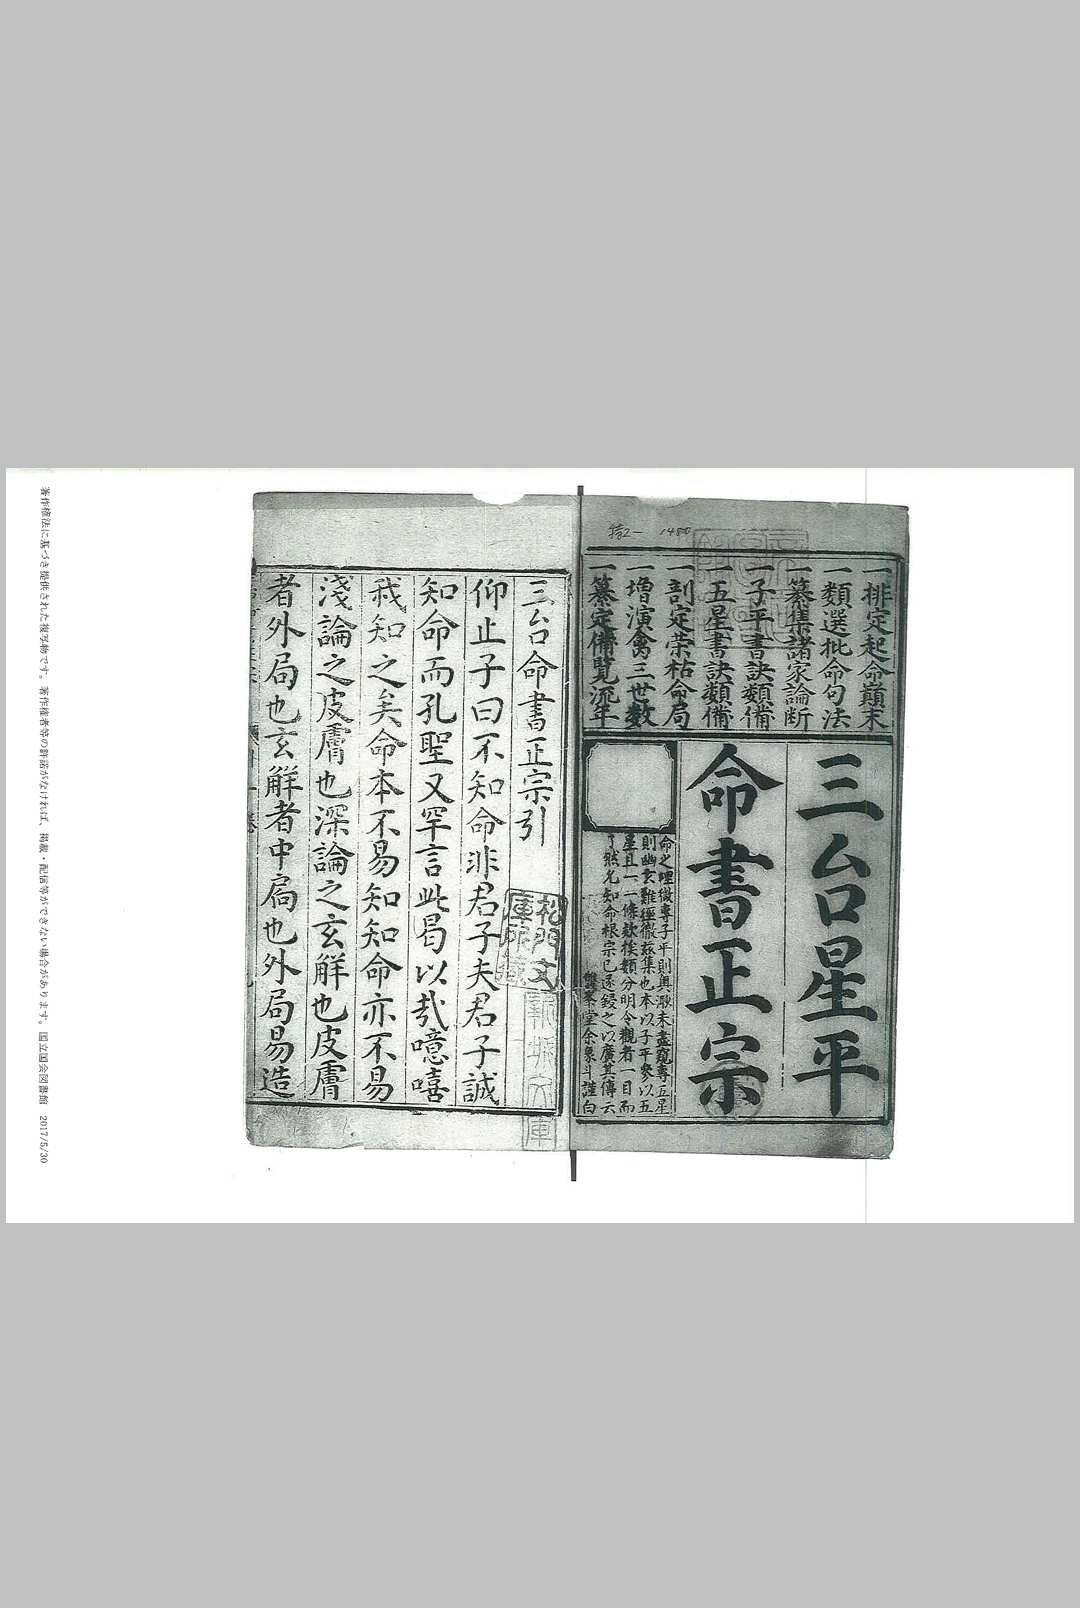 特2-1480
一排定起命巔末
一類選批命句法
一纂集諸家論断
一子平書訣類備
一五星書訣類備
一剖定荣枯命局
一增演禽三世数
一纂定備覽流年
三台星平
命書正宗
命之理微專子平則與淵未盡窺專五星
則幽玄難徑徹茲集也本以子平參以五
星且一一條款挨類分明令觀者一目而
了然允知命根宗已遂鋟之以廣其傳云
雙峯堂余象斗謹白
三台命書正宗引
仰止子曰不知命非君子夫君子誠
知命而孔聖又罕言此曷以哉噫嘻
我知之矣命本不易知知命亦不易
淺論之皮膚也深論之玄解也皮膚
者外局也玄解者中扃也外局易造
松門文
庫所藏
著作権法に基づき提供された複写物です。著作権者等の許諾がなければ、掲載・配信等ができない場合があります。国立国会図書館 2017/5/30